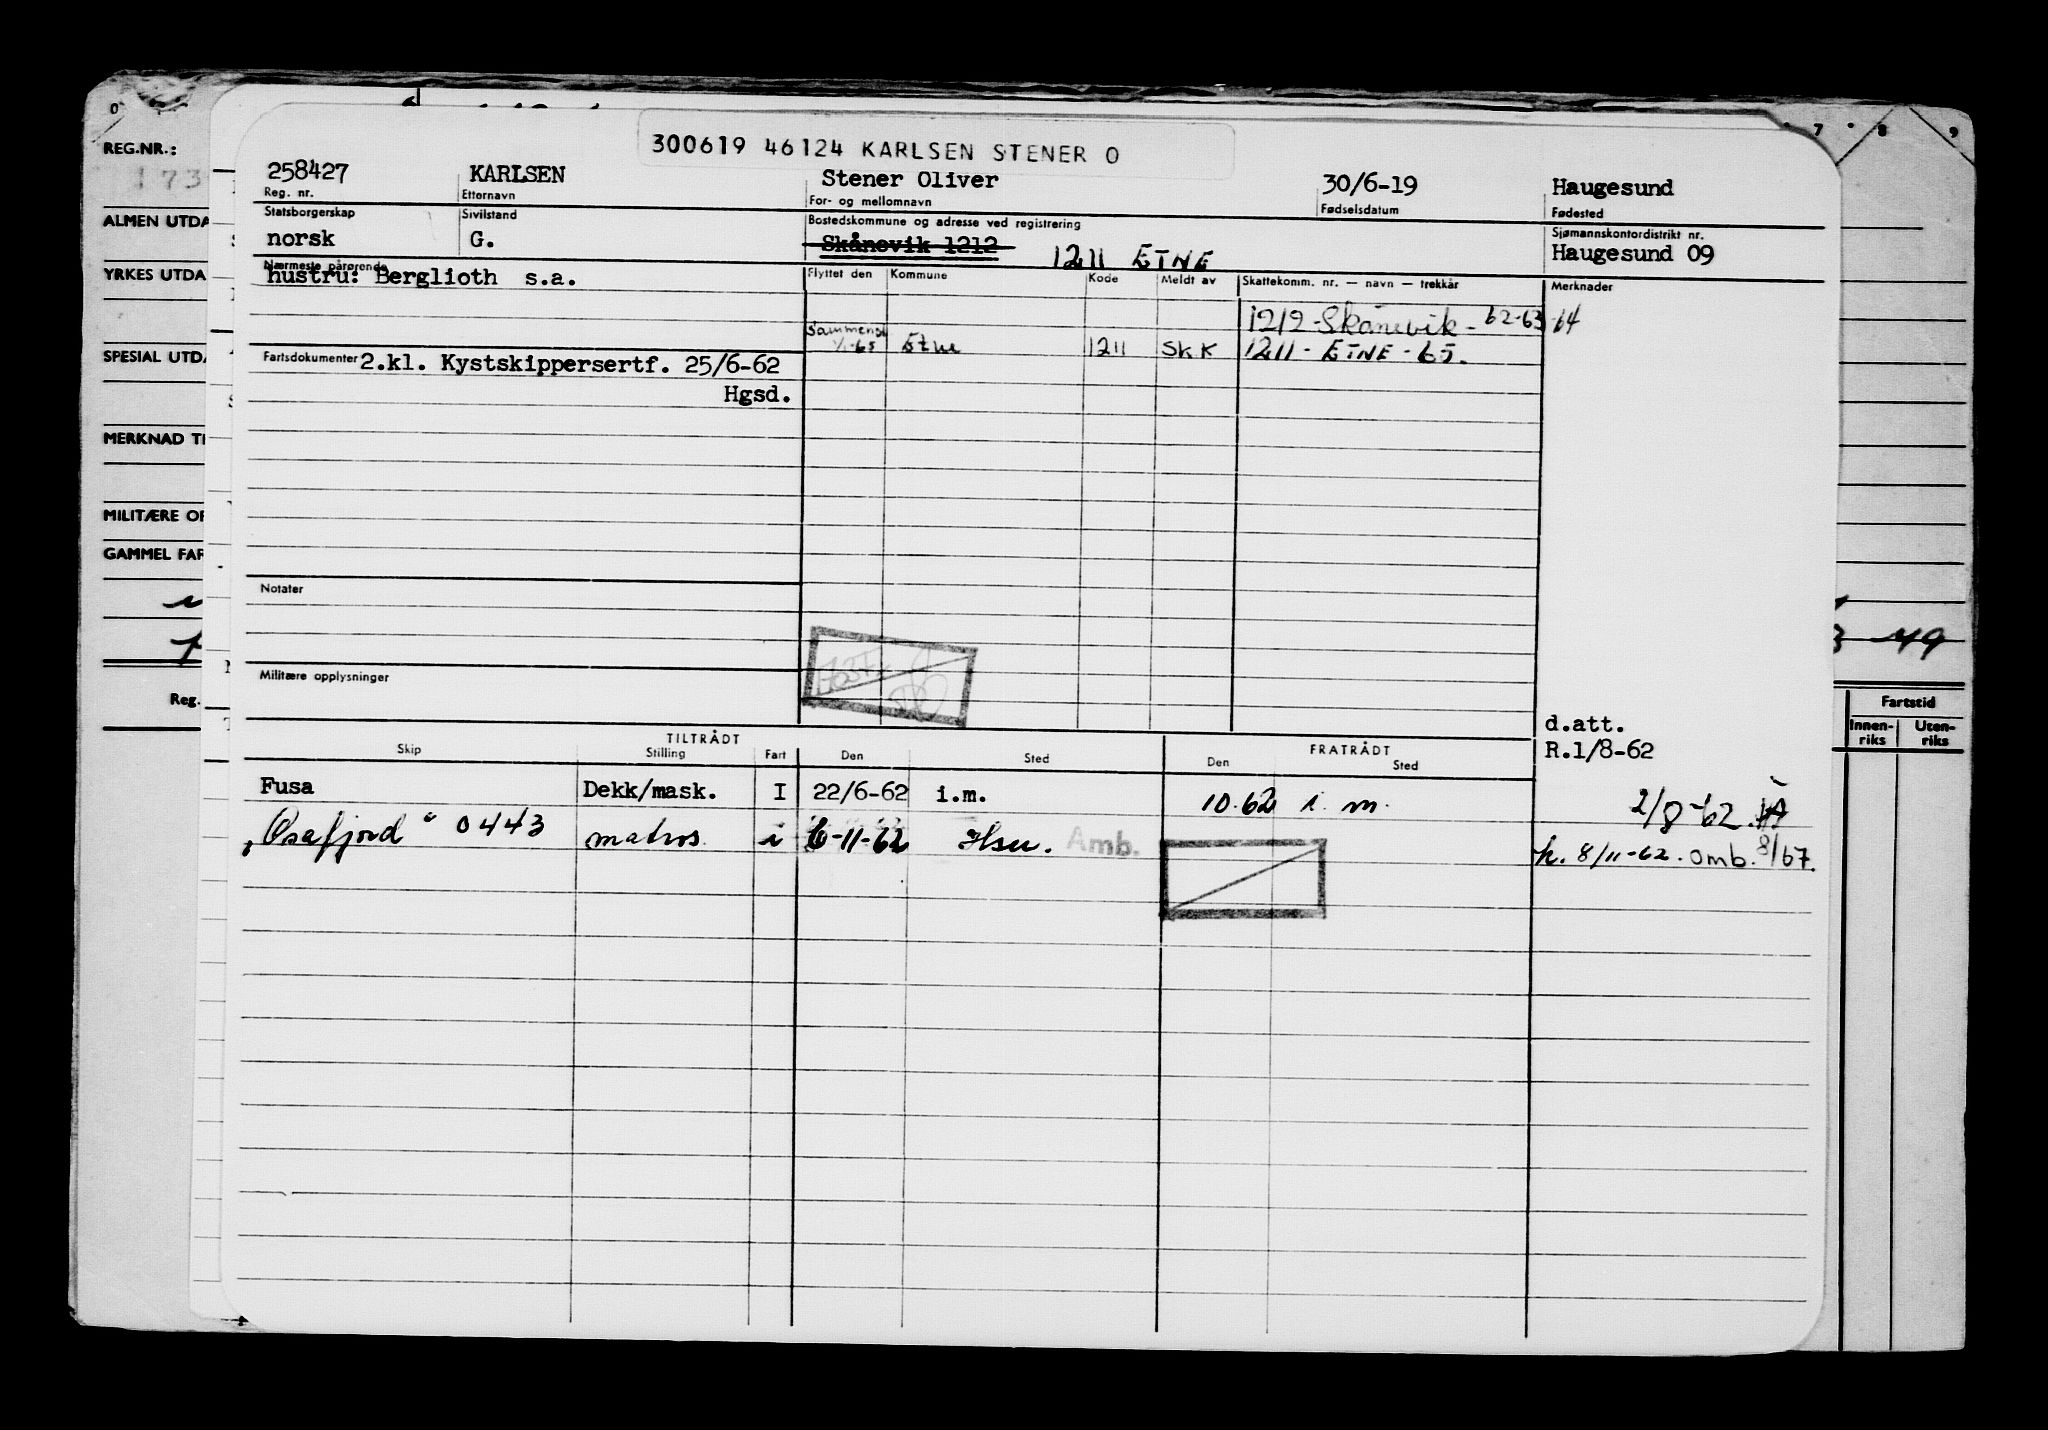 0 7 8 9
300619 46124 KARLSEN STENER O
REG.NR.:
173
258427 KARLSEN Stener Oliver 30/6-19 Haugesund
Reg. nr. Etternavn For- og mellomnavn Fødselsdatum Fødested
ALMEN UTDA
Statsborgerskap Sivilstand Bostedskommune og adresse ved registrering Sjømannskontordistrikt nr.
norsk G. Skånevik 1212 1211 ETNE Haugesund 09
YRKES UTDA
Nærmeste pårørende Flyttet den Kommune Kode Meldt av Skattekomm. nr. — navn — trekkår Merknader
hustru: Berglioth s.a.
1212 - Skånevik - 62-63-64
Sammensl.
SPESIAL UTDA
1/1-65 Etne 1211 SKK 1211 - ETNE - 65.
Fartsdokumenter 2.kl. Kystskippersertf. 25/6-62
Hgsd.
MERKNAD TI
MILITÆRE OP
GAMMEL FAR
Notater
49
Militære opplysninger
Reg.
Fartstid
Innen-riks Uten-riks
d.att.
R.1/8-62
TILTRÅDT FRATRÅDT
Skip Stilling Fart Den Sted Den Sted
Fusa Dekk/mask. I 22/6-62 i.m. 10.62 i. m. 2/8-62.
„Osafjord" 0443 matros i 6-11-62 Hsu. Amb. h. 8/11-62. omb. 8/67.